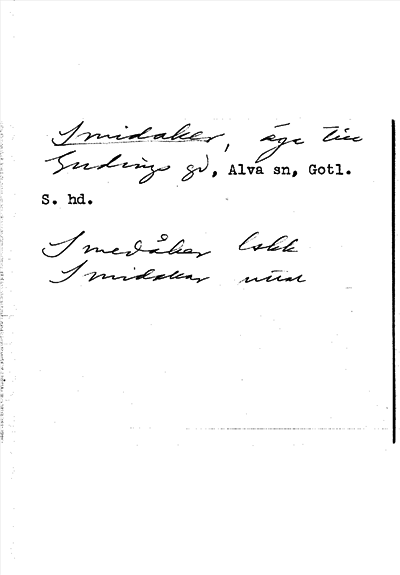 Smidaker, äga till
Gudings gd, Alva sn, Gotl.
S. hd.
Smedåker Lskk
Smidakar uttal